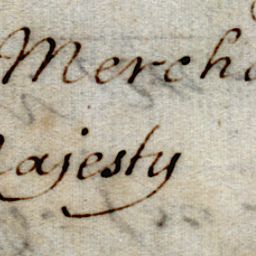 Mercha
Majesty